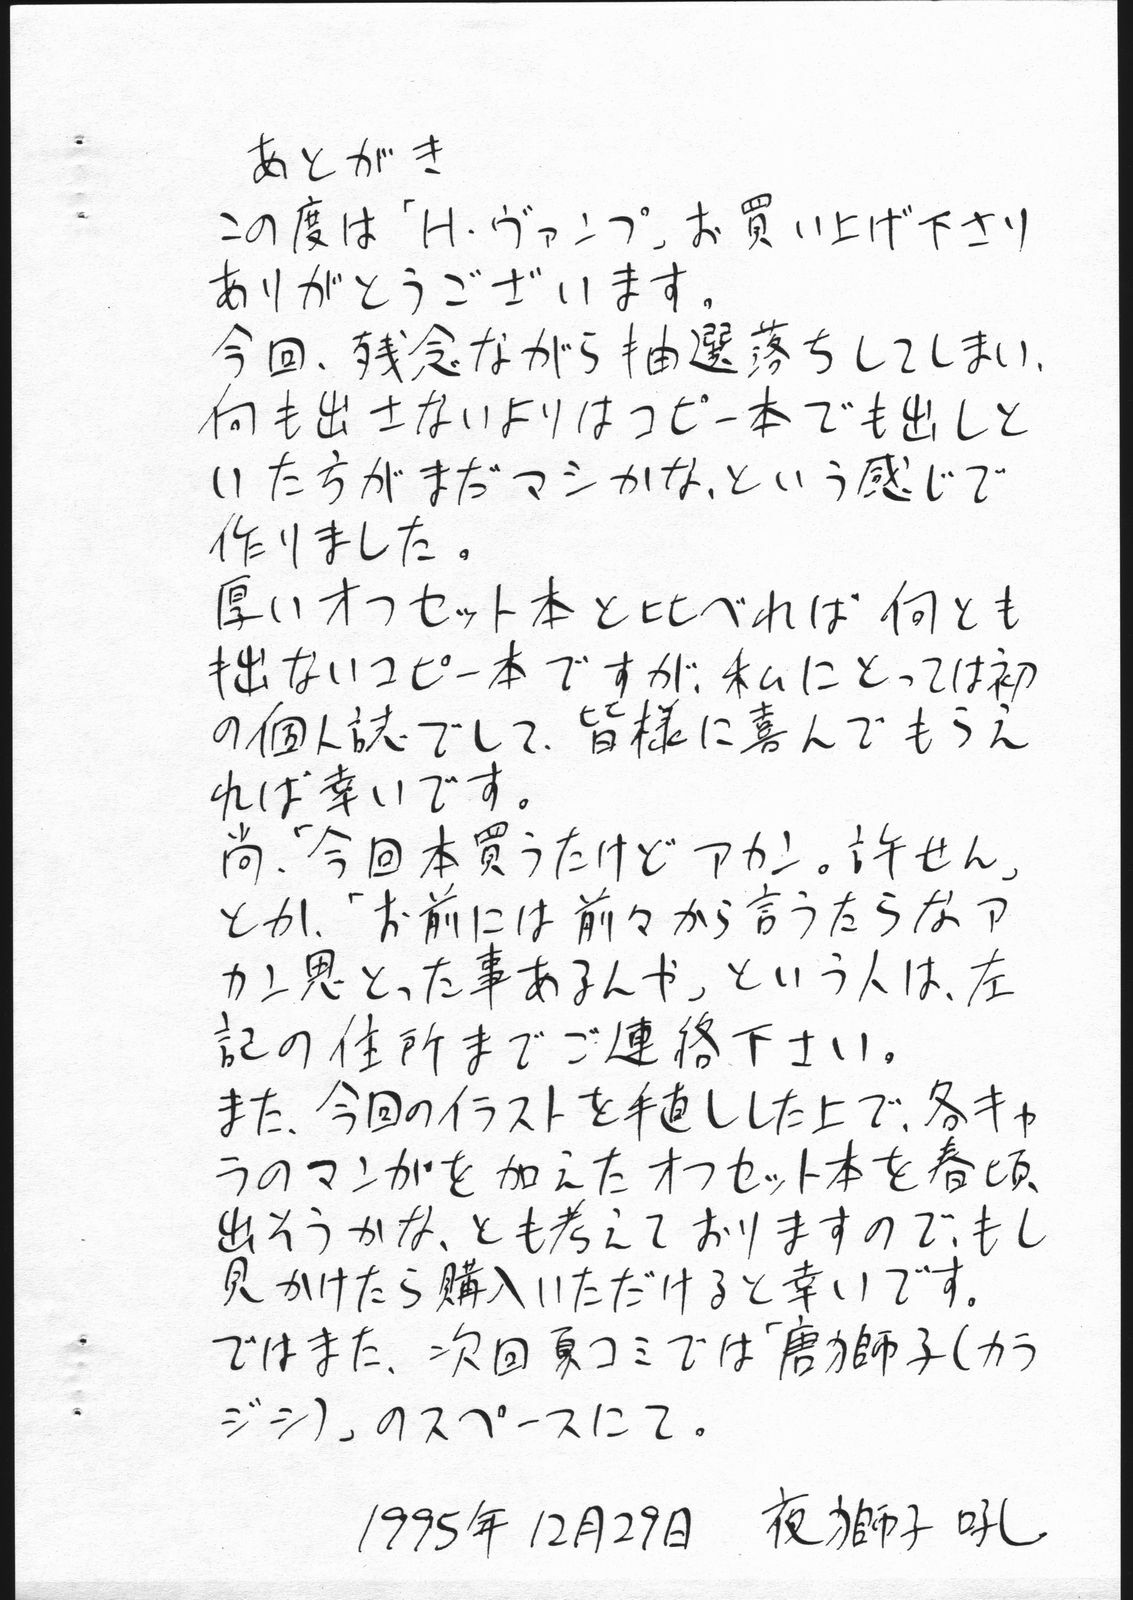 あとがき
この度は「H.ヴァンプ」お買い上げ下さり
ありがとうございます。
今回、残念ながら抽選落ちしてしまい、
何も出さないよりはコピー本でも出しと
いた方がまだマシかな、という感じで
作りました。
厚いオフセット本と比べれば何とも
拙ないコピー本ですが、私にとっては初
の個人誌でして、皆様に喜んでもらえ
れば幸いです。
尚、「今回本買うたけどアカン。許せん」
とか、「お前には前々から言うたらなア
カン思とった事あるんや」という人は、左
記の住所までご連絡下さい。
また、今回のイラストを手直しした上で、各キャ
ラのマンガを加えたオフセット本を春頃、
出そうかな、とも考えておりますので、もし
見かけたら購入いただけると幸いです。
ではまた、次回夏コミでは「唐獅子(カラ
ジシ)」のスペースにて。
1995年12月29日 夜獅子 吼